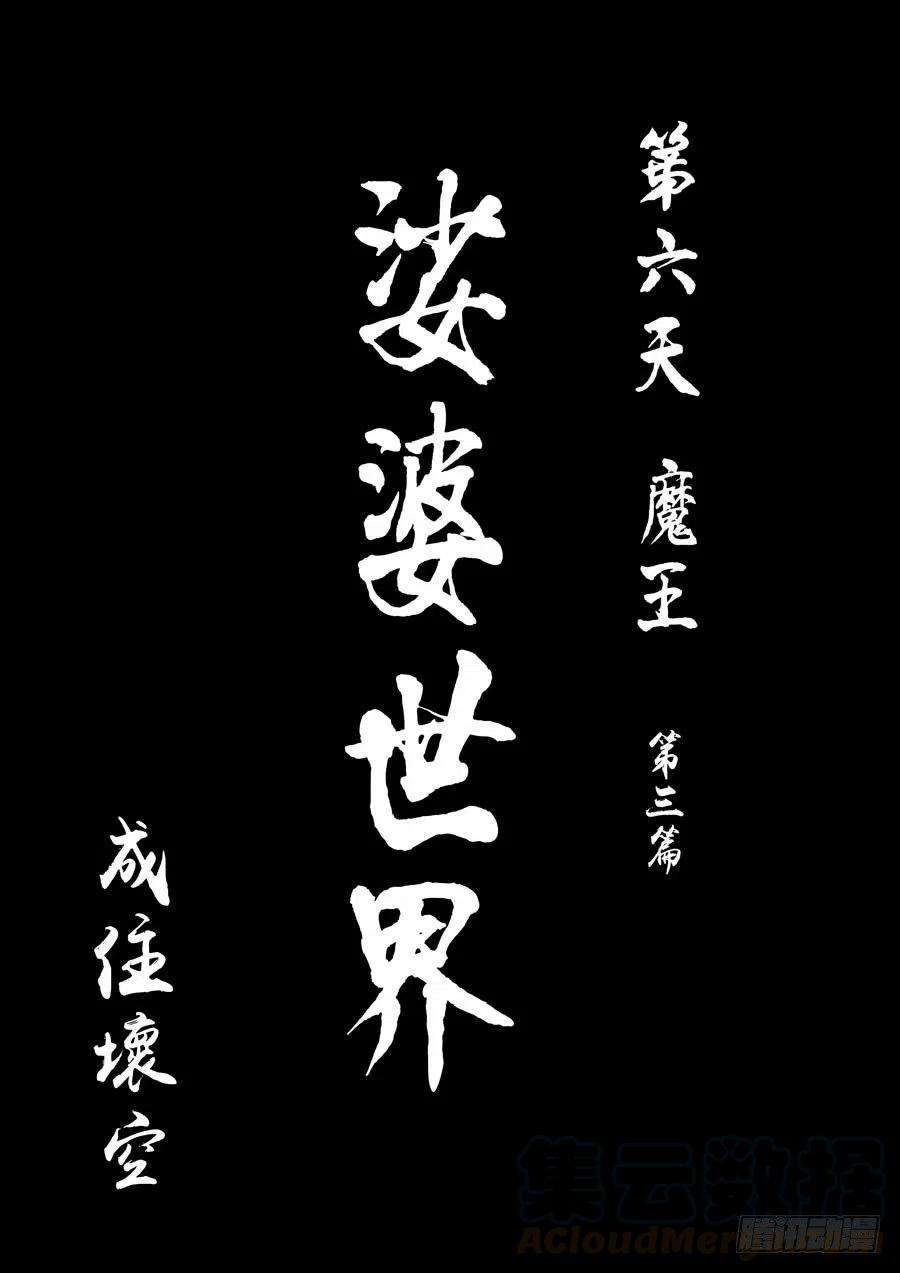 第六天 魔王 第三篇
娑婆世界
成住壞空
集云数据
AcloudMerge
腾讯动漫